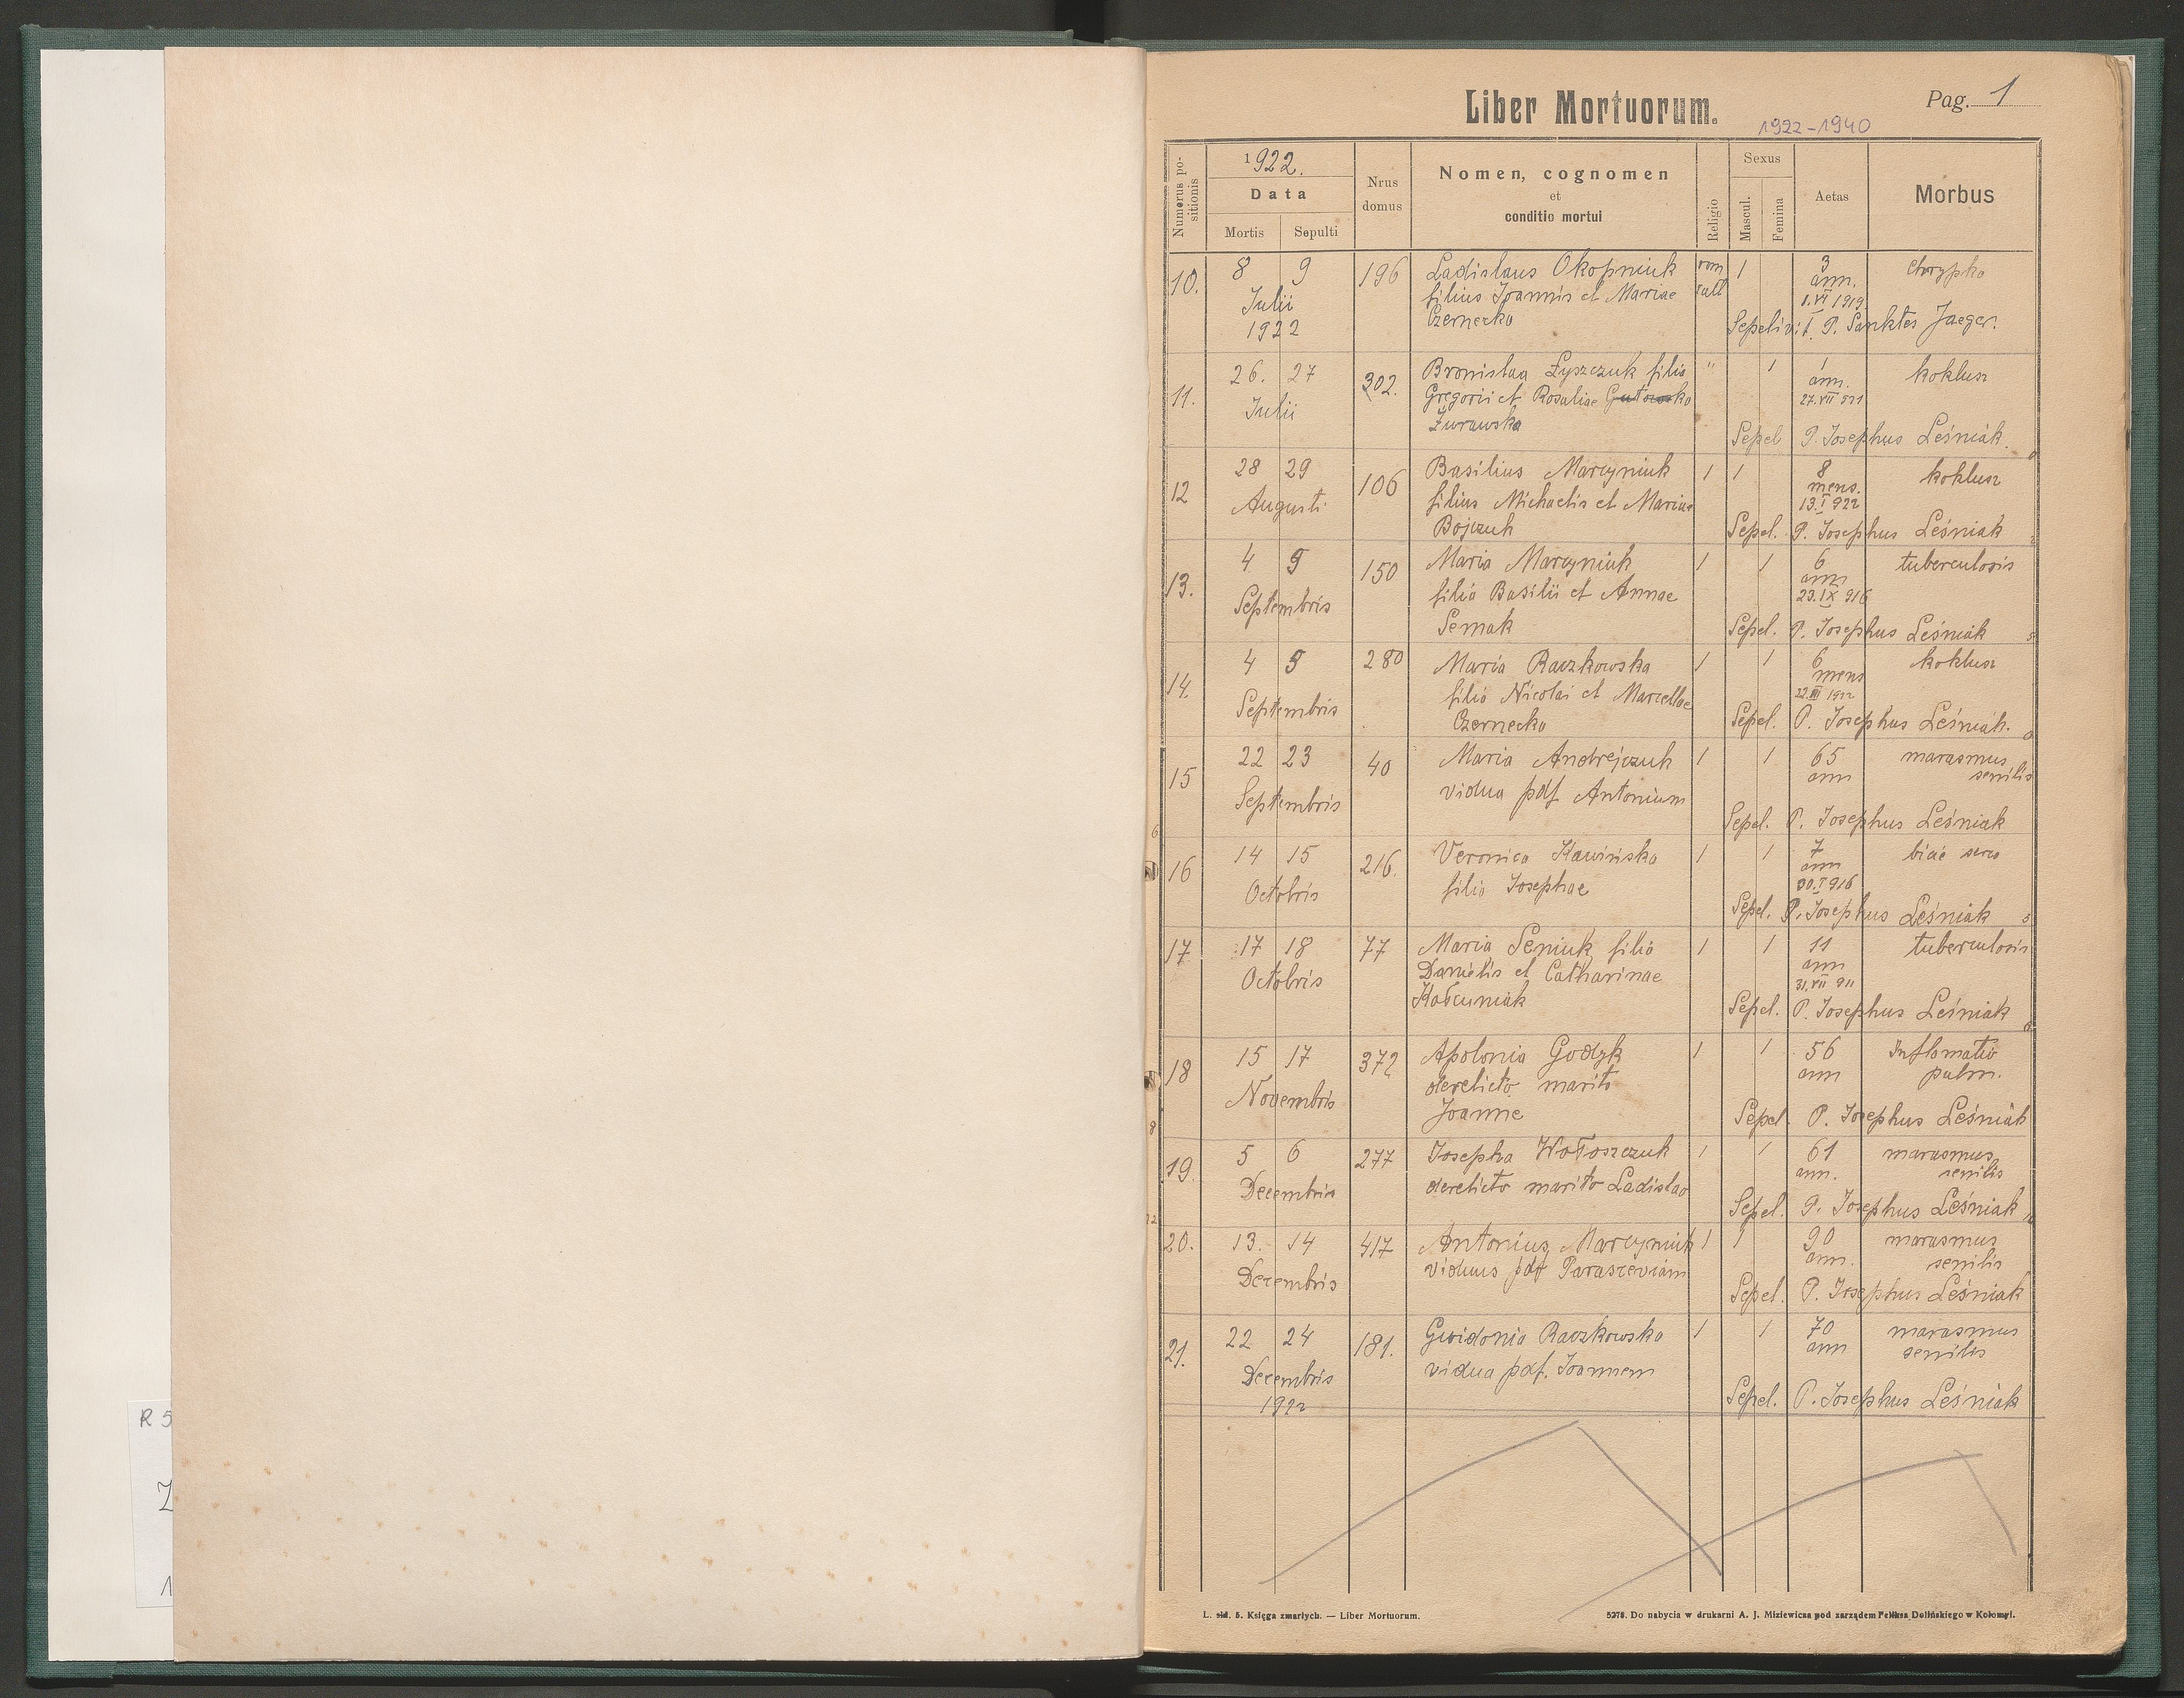 Liber Mortuorum.
Pag. 1
1922-1940
Numerus positionis
1922.
Data
Mortis Sepulti
Nrus domus
Nomen, cognomen
et
conditio mortui
Religio
Sexus
Mascul. Femina
Aetas
Morbus
10. 8 9 196 Ladislaus Okopniuk rom 1 3 chrypka
Julii filius Joannis et Mariae ann.
1922 Czernecka 1.VI 1919
Sepelivit P. Sanktes Jaeger.
11. 26. 27 302. Bronislaa Łyszczuk filia " 1 1 koklusz
Julii Gregorii et Rosaliae ann.
Żurawska 27.VII 921
Sepel P. Josephus Leśniak.
12 28 29 106 Basilius Marcyniuk 1 1 8 koklusz
Augusti filius Michaelis et Mariae mens.
Bojczuk 13.I 922
Sepel. P. Josephus Leśniak
13. 4 5 150 Maria Marcyniuk 1 1 6 tuberculosis
Septembris filia Basilii et Annae ann
Semak 23.IX 916
Sepel. P. Josephus Leśniak
14. 4 5 280 Maria Raczkowska 1 1 6 koklusz
Septembris filia Nicolai et Marcellae mens
Czernecka 22.III 1922
Sepel. P. Josephus Leśniak.
15 22 23 40 Maria Andrejczuk 1 1 65 marasmus
Septembris vidua pdf Antonium ann senilis
Sepel. P. Josephus Leśniak
16 14 15 216. Veronica 1 1 7
Octobris filia Josephae ann
Sepel. P. Josephus Leśniak
17 17 18 77 Maria Seniuk filia 1 1 11 tuberculosis
Octobris Danielis et Catharinae ann
31.VII 911
Sepel. P. Josephus Leśniak
18 15 17 372 Apolonia Godyk 1 1 56 Inflamatio
Novembris derelicto marito ann pulm.
Joanne
Sepel. P. Josephus Leśniak
19. 5 6 277 Josepha Wołoszczuk 1 1 61 marasmus
Decembris derelicto marito Ladislao ann. senilis
Sepel. P. Josephus Leśniak
20. 13. 14 417 Antonius Marcyniuk 1 1 90 marasmus
Decembris viduus pdf Parasceviam ann. senilis
Sepel. P. Josephus Leśniak
21. 22 24 181. Gwidonia Raczkowska 1 1 70 marasmus
Decembris vidua pdf. Joannem ann senilis
1922
Sepel. P. Josephus Leśniak
R 5
L. skł. 5. Księga zmarłych. — Liber Mortuorum.
5278. Do nabycia w drukarni A. J. Miziewicza pod zarządem Feliksa Dolińskiego w Kołomyi.